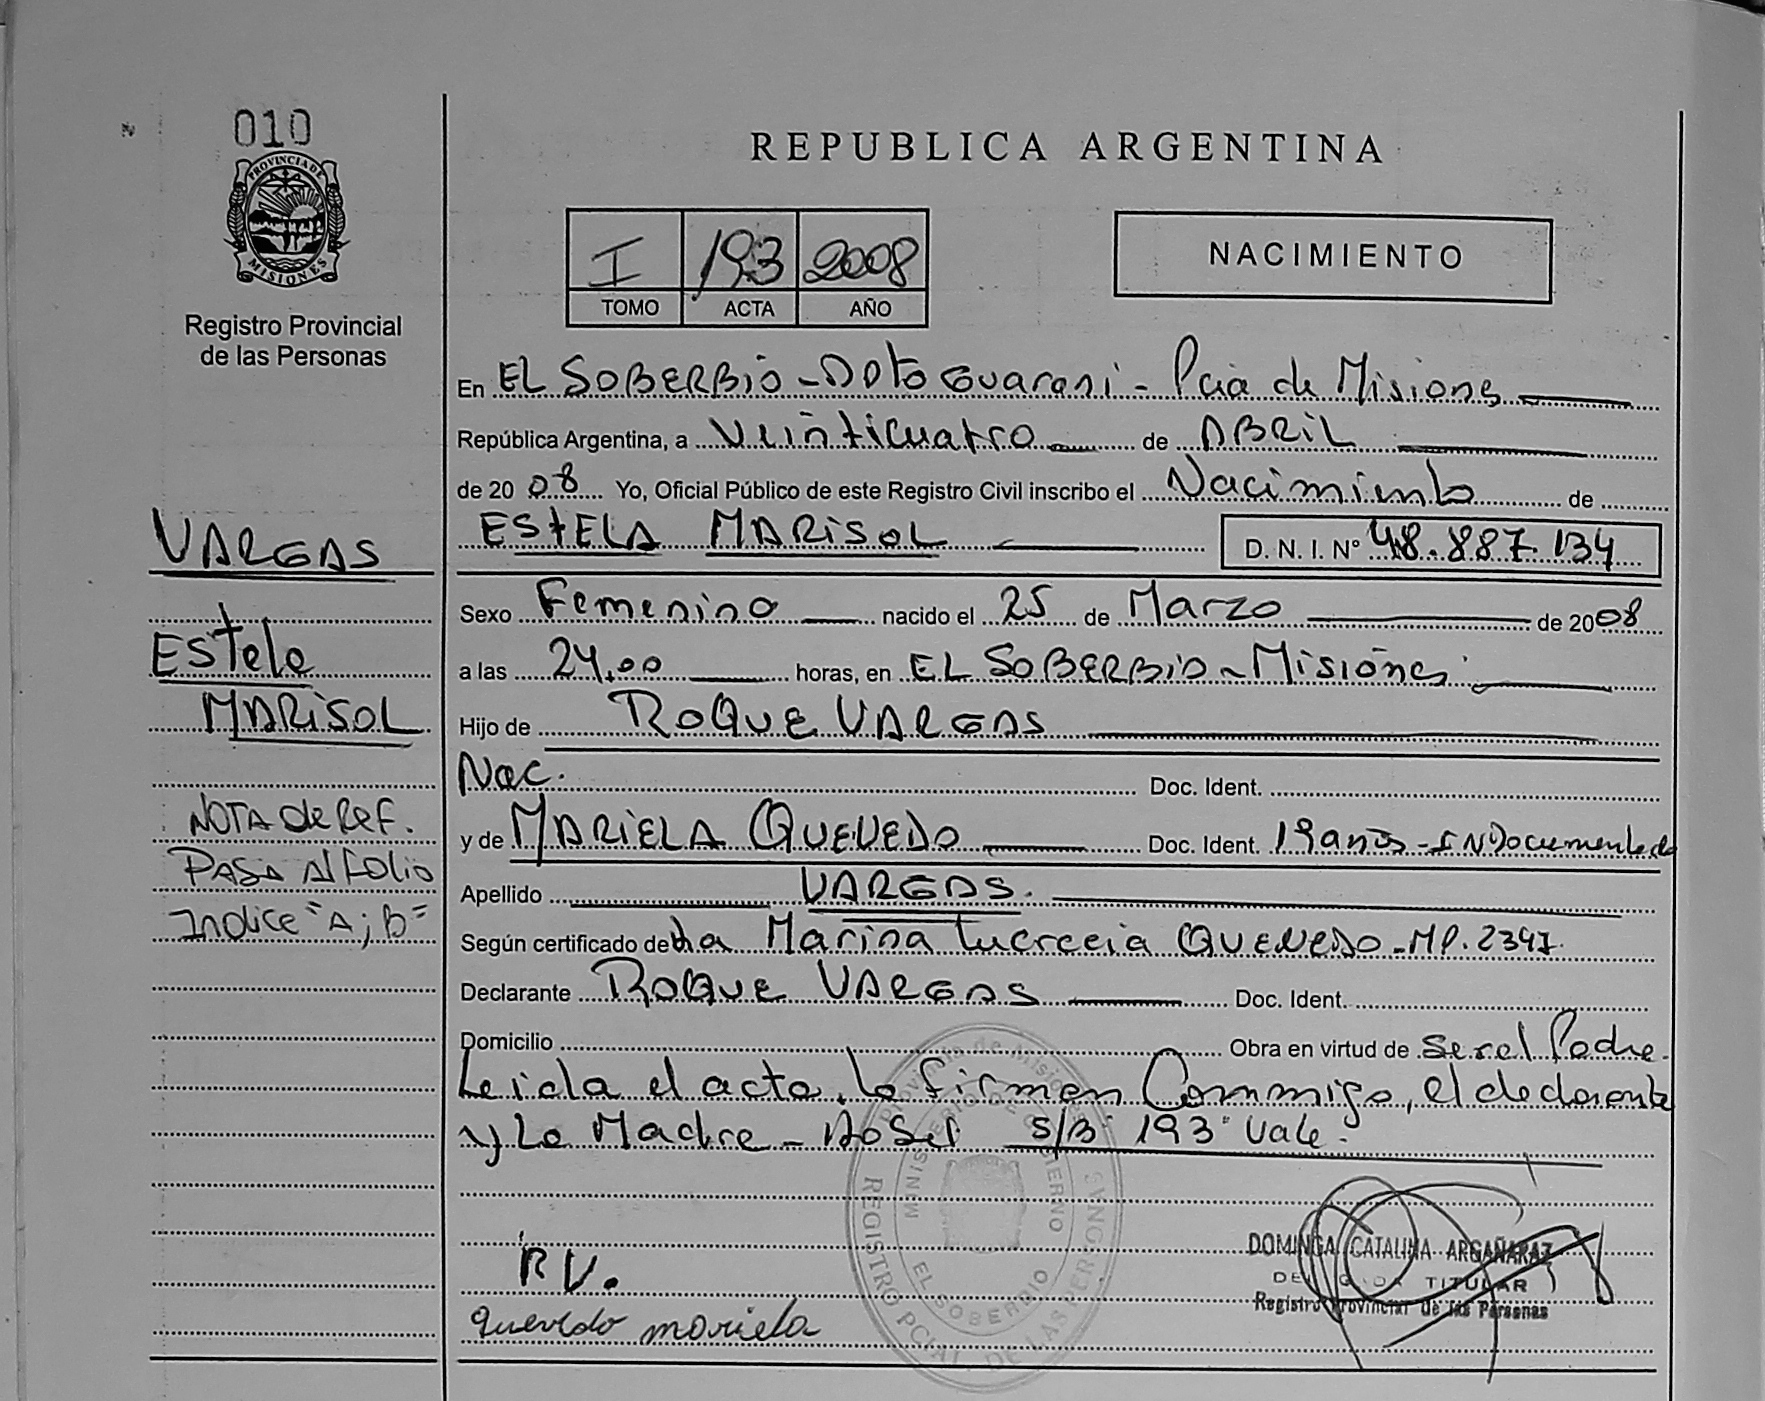 010
PROVINCIA DE
MISIONES
Registro Provincial
de las Personas
REPUBLICA ARGENTINA
I 193 2008
TOMO ACTA AÑO
NACIMIENTO
En EL SOBERBIO - Dpto Guarani - Pcia de Misiones
República Argentina, a Veinticuatro de ABRIL
de 20 08 Yo, Oficial Público de este Registro Civil inscribo el Nacimiento de
ESTELA MARISOL D. N. I. Nº 48.887.134
Sexo Femenino nacido el 25 de Marzo de 2008
a las 24,00 horas, en EL SOBERBIO - Misiones
Hijo de ROQUE VARGAS
Nac. Doc. Ident.
y de MARIELA QUEVEDO Doc. Ident. 19 años - INDocumentada
Apellido VARGAS.
Según certificado de Marina QUEVEDO - MP. 2347.
Declarante ROQUE VARGAS Doc. Ident.
Domicilio Obra en virtud de Ser el Padre.
Leida el acta, la firman Conmigo, el declarante
y La Madre - S/B 193 Vale.
VARGAS
Estela
MARISOL
NOTA de Ref.
PASA Al Folio
Indice "A; B"
R V.
quevedo mariela
DOMINGA CATALINA ARGAÑARAZ
DELEGADA TITULAR
Registro Provincial de las Personas
Provincia de Misiones
MINISTERIO DE GOBIERNO
EL SOBERBIO
REGISTRO PCIAL. DE LAS PERSONAS